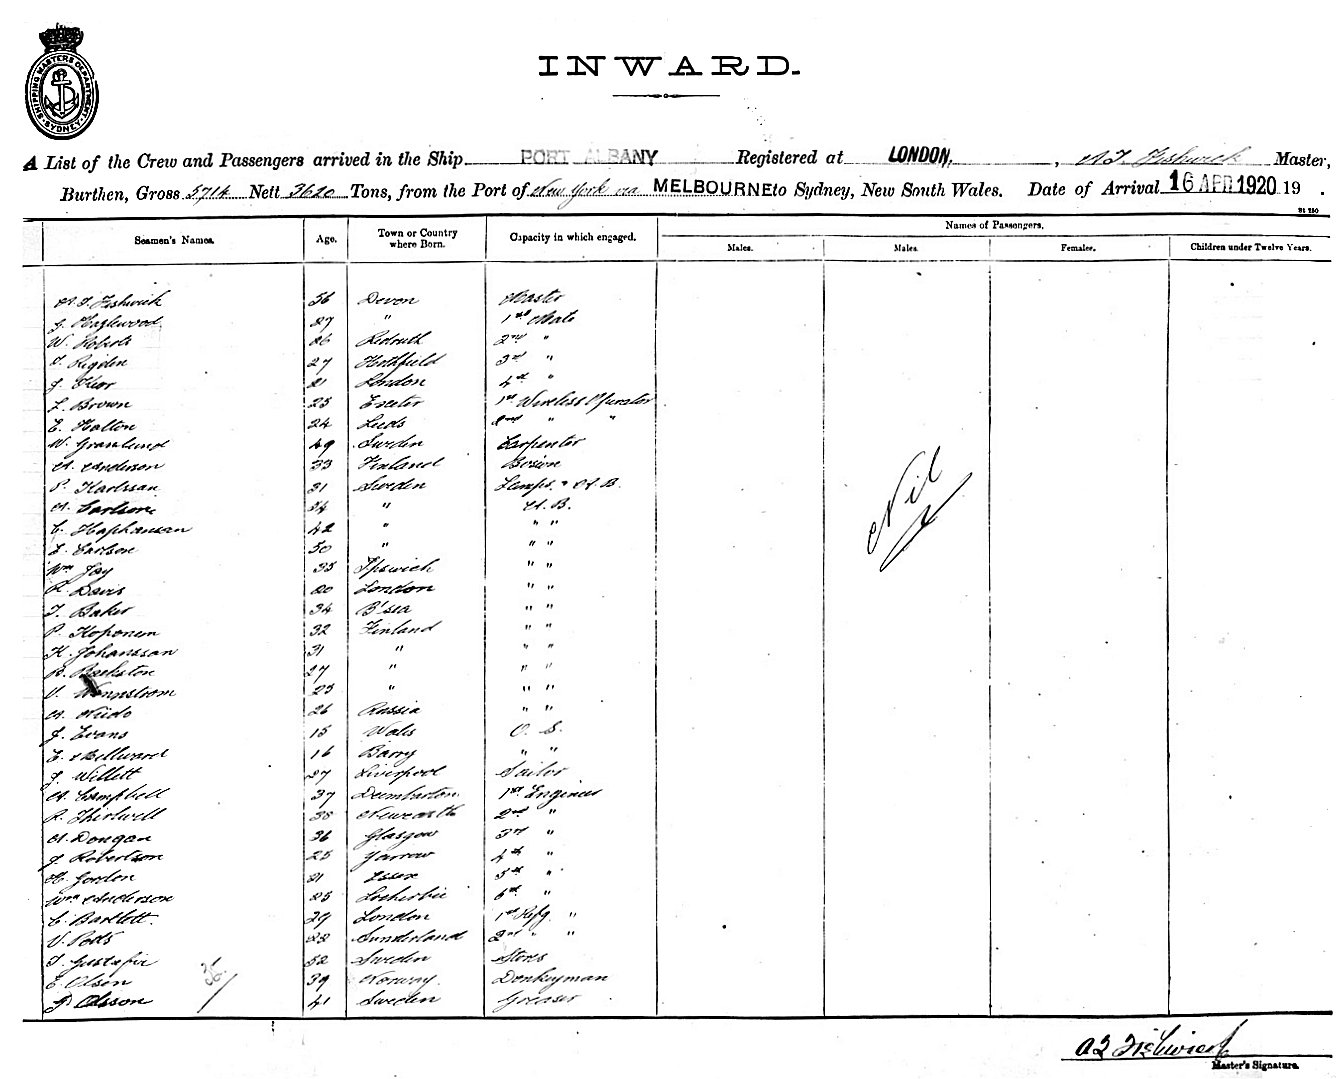 SHIPPING MASTERS DEPARTMENT SYDNEY
INWARD.
A List of the Crew and Passengers arrived in the Ship PORT ALBANY Registered at LONDON, , A.T. Fishwick Master,
Burthen, Gross 5714 Nett 3620 Tons, from the Port of New York via MELBOURNE to Sydney, New South Wales. Date of Arrival 16 APR 1920 19 .
Seamen's Names. Age. Town or Country where Born. Capacity in which engaged. Names of Passengers.
Males. Males. Females. Children under Twelve Years.
A.T. Fishwick 36 Devon Master
J. Hazlewood 27 " 1st Mate
W. Roberts 26 Redruth 2nd "
T. Rigden 27 Hothfield 3rd "
J. 21 London 4th "
L. Brown 25 Exeter 1st Wireless Operator
E. Halton 24 Leeds 2nd " "
W. Granlund 49 Sweden Carpenter
A. Anderson 33 Finland Bosun
P. Karlssan 31 Sweden Lamps. & A.B.
A. Carlson 34 " A.B.
C. Haphansan 42 " " "
L. Carlson 50 " " "
Wm Jay 35 Ipswich " "
Davis 20 London " "
T. Baker 34 B'sea " "
P. Koponen 32 Finland " "
K. Johanssan 31 " " "
27 " " "
V. Wennstrom 25 " " "
A. 26 Russia " "
J. Evans 15 Wales O. S.
E. Bellward 16 Barry " "
J. Willett 27 Liverpool Sailor
A. Campbell 37 Dumbarton 1st Engineer
R. Thirlwell 38 Newcastle 2nd "
A. Dongan 36 Glasgow 3rd "
J. Robertson 25 Yarrow 4th "
H. Gordon 21 Essex 5th "
Wm Anderson 25 Lockerbie 6th "
C. Bartlett. 29 London 1st Rfg. "
V. Potts 22 Sunderland 2nd " "
T. 52 Sweden Stores
E. Olsen 39 Norway. Donkeyman
P. Olsson 41 Sweden Greaser
Nil
A T Fishwick
Master's Signature.